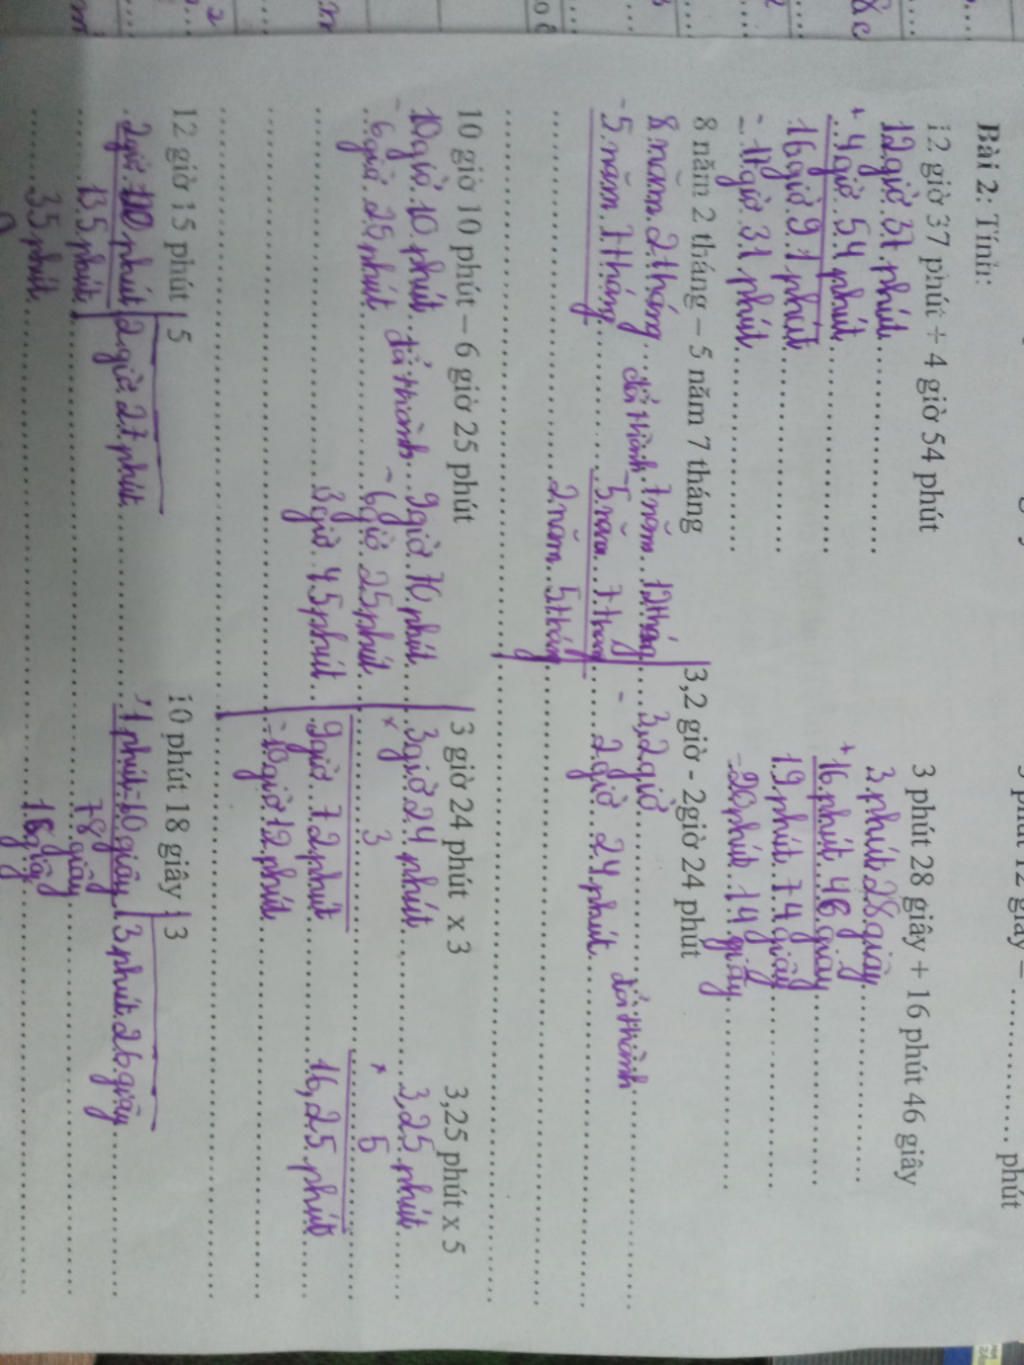 Bài 2: Tính:
12 giờ 37 phút + 4 giờ 54 phút
12 giờ 37 phút
+ 4 giờ 54 phút
16 giờ 91 phút
= 17 giờ 31 phút
3 phút 28 giây + 16 phút 46 giây
3 phút 28 giây
+ 16 phút 46 giây
19 phút 74 giây
= 20 phút 14 giây
8 năm 2 tháng – 5 năm 7 tháng
8 năm 2 tháng đổi thành 7 năm 12 tháng
- 5 năm 7 tháng - 5 năm 7 tháng
2 năm 5 tháng
3,2 giờ - 2giờ 24 phút
3,2 giờ đổi thành
- 2 giờ 24 phút
10 giờ 10 phút – 6 giờ 25 phút
10 giờ 10 phút đổi thành 9 giờ 70 phút
- 6 giờ 25 phút - 6 giờ 25 phút
3 giờ 45 phút
3 giờ 24 phút x 3
3 giờ 24 phút
x 3
9 giờ 72 phút
= 10 giờ 12 phút
3,25 phút x 5
3,25 phút
x 5
16,25 phút
12 giờ 15 phút 5
2 giờ phút 2 giờ 27 phút
135 phút
35 phút
10 phút 18 giây 3
1 phút giây 3 phút 26 giây
78 giây
18 giây